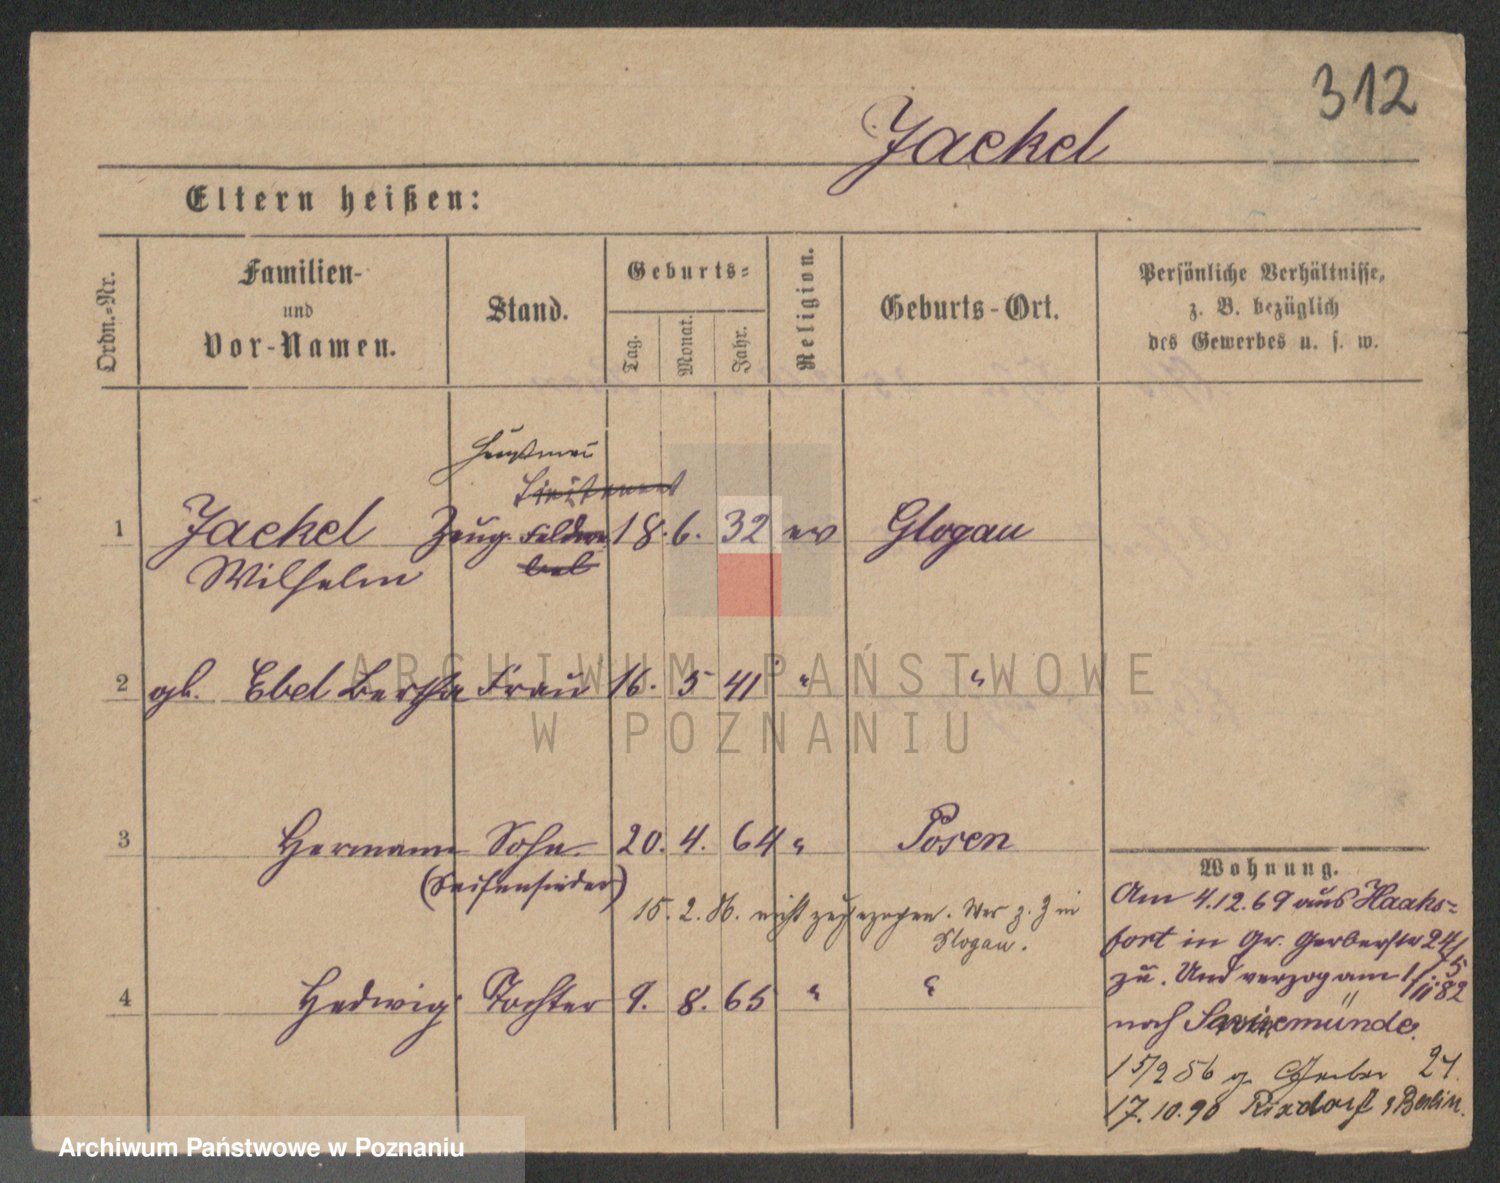 312
Jackel
Eltern heißen:
Ordn.-Nr.
Familien-
und
Vor-Namen.
Stand.
Geburts-
Tag.
Monat.
Jahr.
Religion.
Geburts-Ort.
Persönliche Verhältnisse,
z. B. bezüglich
des Gewerbes u. s. w.
Lieutenant
1 Jackel Zeug. Feldwe 18. 6. 32 ev Glogau
bel
Wilhelm
2 gb. Ebel Bertha Frau 16. 5 41 " "
3 Hermann Sohn 20. 4. 64 " Posen
(Seifensieder)
15. 2. 86. nicht zugezogen. War z. Z in
Glogau.
4 Hedwig Tochter 9. 8. 65 " "
Wohnung.
Am 4.12.69 aus Haaks-
fort in Gr. Gerberstr 24/
zu. Und verzog am 1/5
82
nach Swinemünde.
15/2 86 Gerber 24.
17.10.90 Rixdorf Berlin.
ARCHIWUM PAŃSTWOWE
W POZNANIU
Archiwum Państwowe w Poznaniu